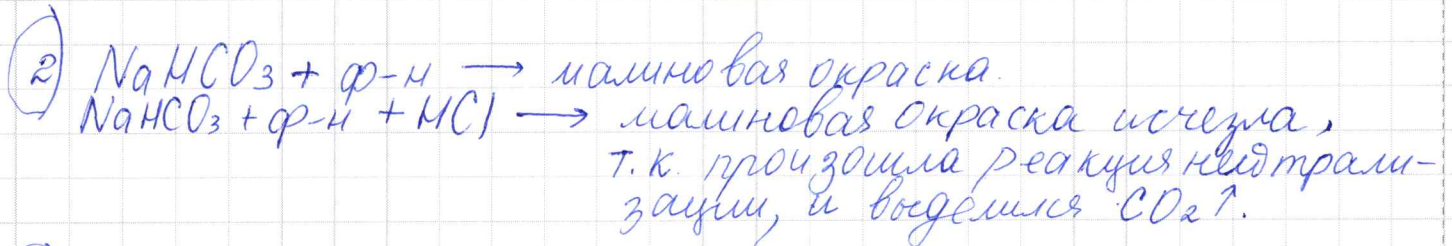 2) NaHCO3 + ф-н → малиновая окраска.
NaHCO3 + ф-н + HCl → малиновая окраска исчезла,
т.к. произошла реакция нейтрали-
зации, и выделился CO2↑.